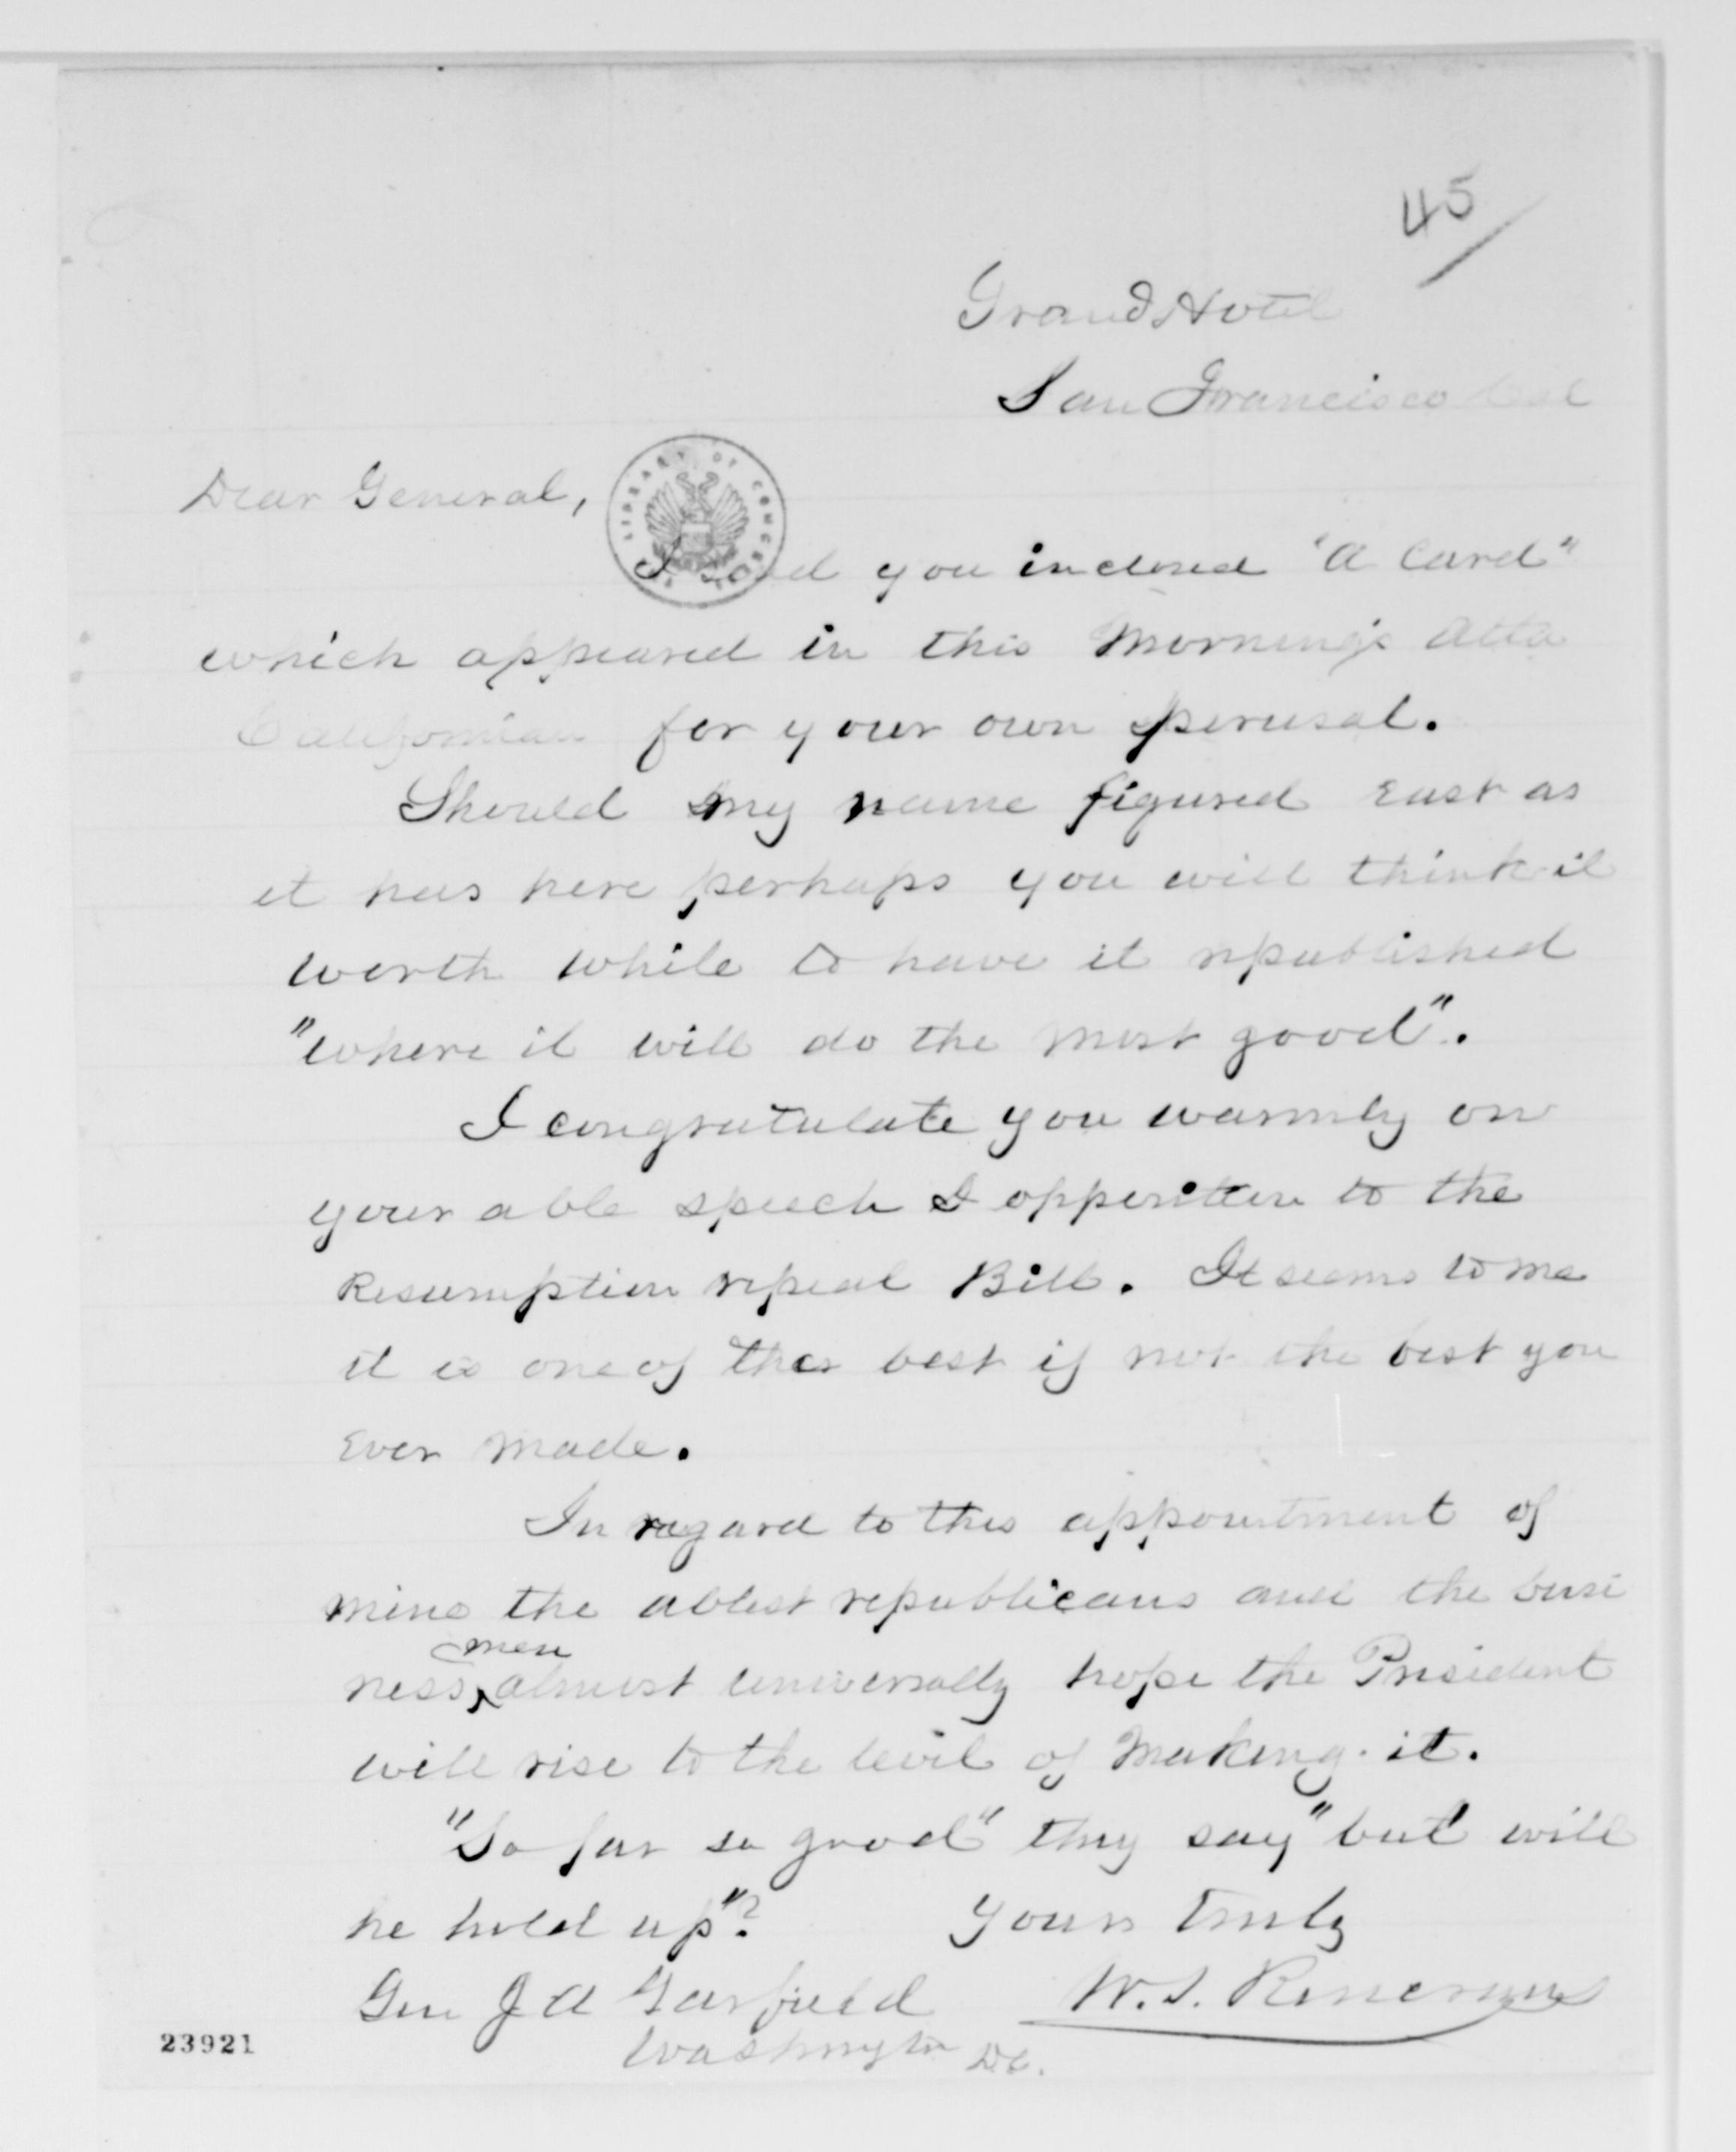 45
Grand Hotel
San Francisco Cal
Dear General,
LIBRARY OF CONGRESS
I send you inclosed "A Card"
which appeared in this Morning's Alta
Californian for your own perusal.
Should my name figured East as
it has here perhaps you will think it
worth while to have it republished
"where it will do the most good".
I congratulate you warmly on
your able speech I opposition to the
Resumption repeal Bill. It seems to me
it is one of the best if not the best you
Ever made.
In regard to this appointment of
mine the ablest republicans and the busi
men
ness almost universally hope the President
will rise to the level of making it.
"So far so good" they say "but will
he hold up"? Yours Truly
Gen J A Garfield W. S.
Washington DC.
23921